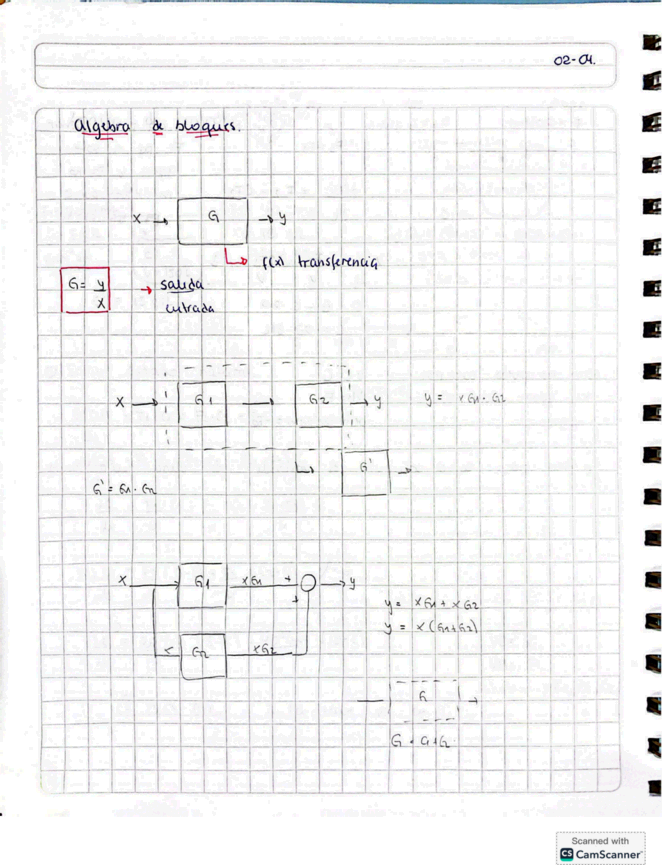 02-04.
algebra de bloques.
x → G → y
f(x) transferencia
G = y/x → salida
entrada
x → G1 → G2 → y
y = xG1 · G2
G'
G' = G1 · G2
x G1 xG1 + y
+
y = xG1 + xG2
y = x(G1+G2)
x G2 xG2
G
Scanned with
CS CamScanner